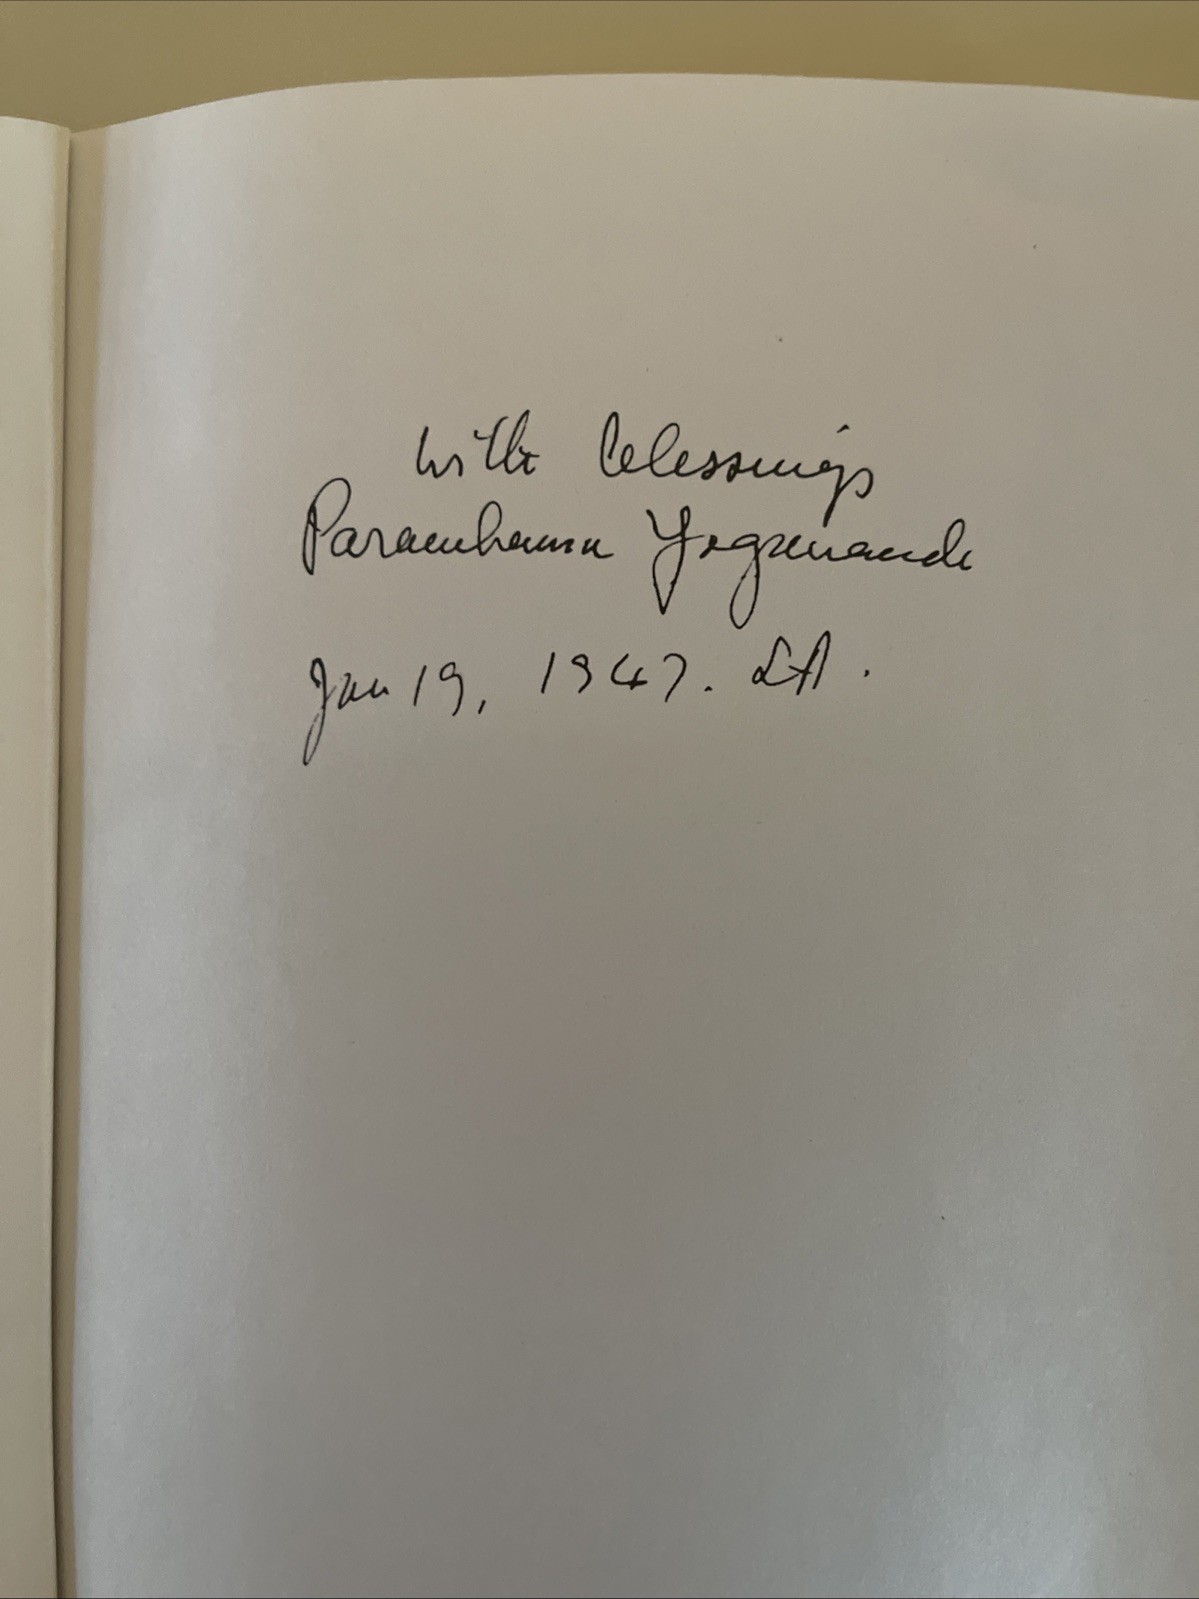 With blessings
Paramhansa Yogananda
Jan 19, 1947. LA.